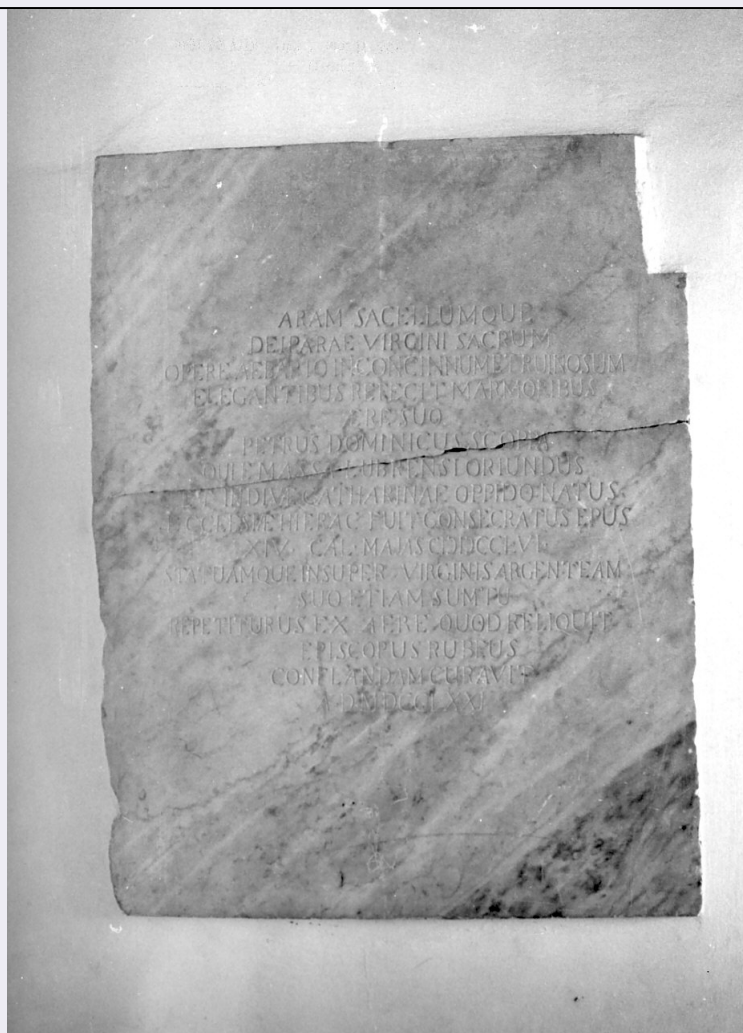 ARAM SACELLUMQUE
DEIPARAE VIRGINI SACRUM
OPERE AEDARIO INCONCINNUM ET RUINOSUM
ELEGANTIBUS REFECIT MARMORIBUS
AERE SUO
PETRUS DOMINICUS SCOPPA
QUI E MASSA LUBRENSI ORIUNDUS
DIVAE CATHARINAE OPPIDO NATUS
ECCLESIAE HIERAC FUIT CONSECRATUS EPUS
XIV CAL MAIAS
STATUAMQUE INSUPER VIRGINIS ARGENTEAM
SUO ETIAM SUMTU
REPETITURUS EX AERE QUOD RELIQUIT
EPISCOPUS RUBEUS
CONFLANDAM CURAVIT
A D MDCCLXXI